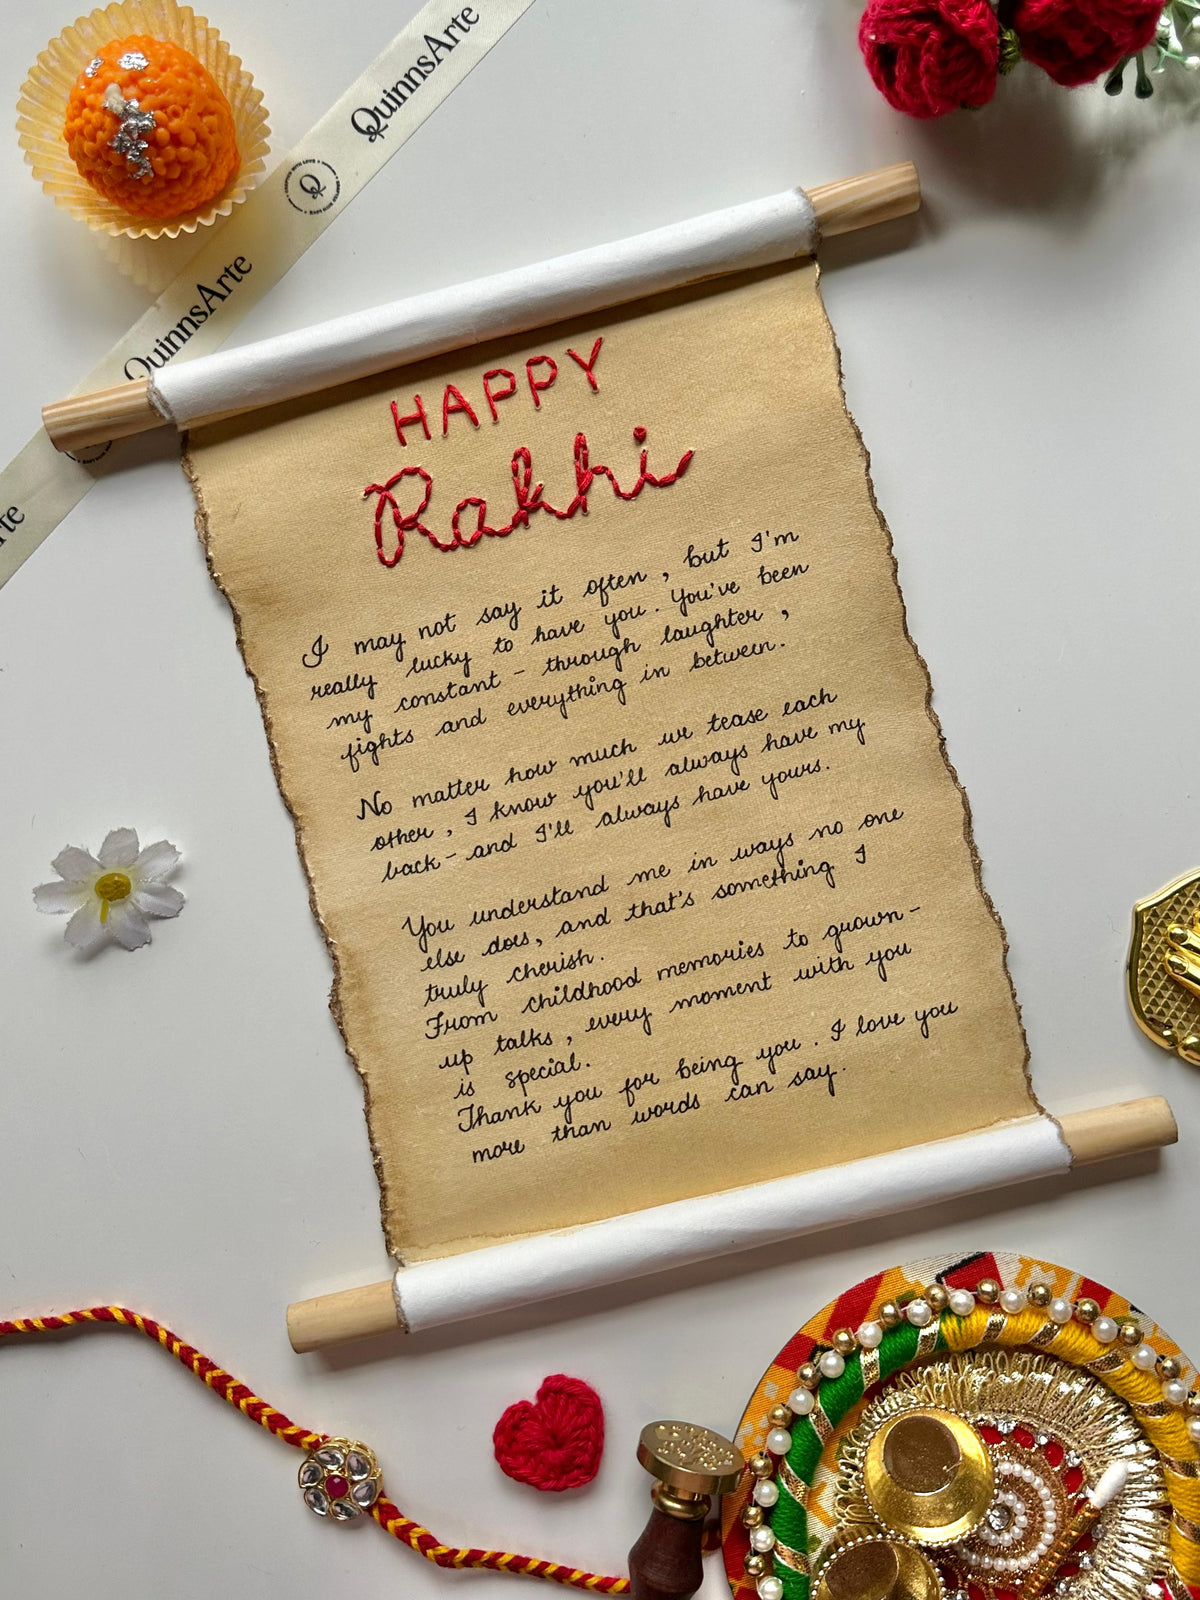 QuinnsArte
Q
QuinnsArte
HAPPY
Rakhi
I may not say it often, but I'm
really lucky to have you. You've been
my constant - through laughter,
fights and everything in between.
No matter how much we tease each
other, I know you'll always have my
back - and I'll always have yours.
You understand me in ways no one
else does, and that's something I
truly cherish.
From childhood memories to grown-
up talks, every moment with you
is special.
Thank you for being you. I love you
more than words can say.